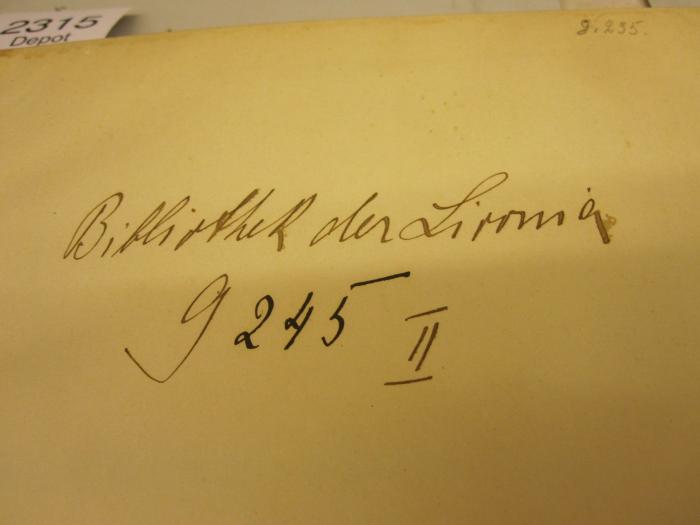 2315
Depot
g. 235.
Bibliothek der Livonia
g 245 II